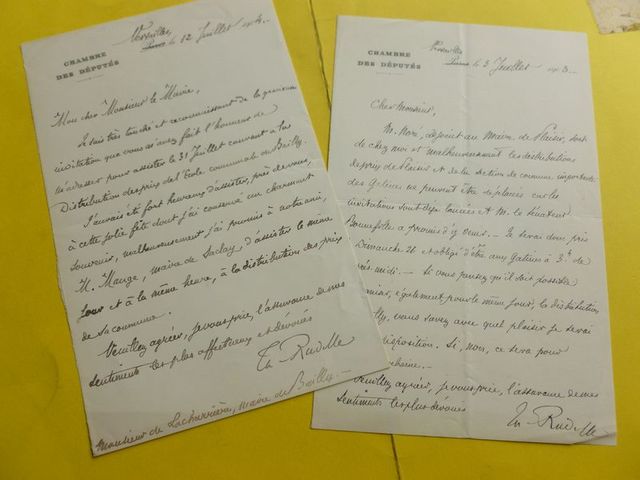 CHAMBRE
DES DÉPUTÉS
Versailles
Paris le 12 Juillet 1904.
Mon cher Monsieur le Maire,
Je suis très touché et reconnaissant de la gracieuse
invitation que vous m'avez fait l'honneur de
m'adresser pour assister le 31 Juillet courant à la
Distribution des prix de l'École communale de Bailly.
J'aurais été fort heureux d'assister, près de vous,
à cette jolie fête dont j'ai conservé un charmant
souvenir, malheureusement j'ai promis à notre ami,
M. Mauge, maire de Saclay, d'assister le même
jour et à la même heure, à la distribution des prix
de sa commune.
Veuillez agréer, je vous prie, l'assurance de mes
sentiments les plus affectueux et dévoués
Th Rudelle
Monsieur de Lacharrière, maire de Bailly.—
CHAMBRE
DES DÉPUTÉS
Versailles
Paris le 3 Juillet 190
Cher Monsieur,
M. Noré, adjoint au Maire de Plaisir, sort
de chez moi et malheureusement les distributions
de prix de Plaisir et de la section de commune importante
des Gatines ne peuvent être déplacées car les
invitations sont déjà lancées et M. le Sénateur
Bonnefille a promis d'y venir. — Je serai donc pris
Dimanche 26 et obligé d'être aux Gatines à 3h de
midi. — Si vous pensez qu'il soit possible
également pour le même jour, la distribution
lly, vous savez avec quel plaisir je serai
disposition. Si, non, ce sera pour
chaine. —
Veuillez agréer, je vous prie, l'assurance de mes
Sentiments les plus dévoués
Th Rudelle